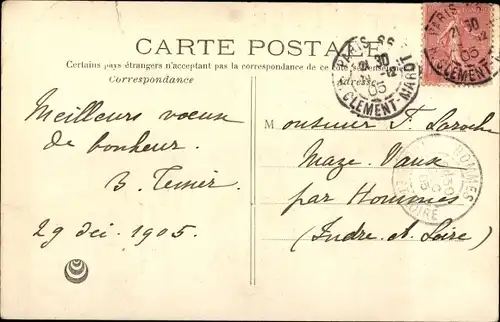 CARTE POSTALE
Certains pays étrangers n'acceptant pas la correspondance de ce côté
Correspondance
Adresse
PARIS
21 30
12
05
CLEMENT-MAROT
PARIS
21 30
12
05
CLEMENT-MAROT
Meilleurs vœux
de bonheur.
29 déc. 1905.
Monsieur F. Laroche
Maze-Vaux
par Hommes
(Indre-et-Loire)
HOMMES
05
LOIRE